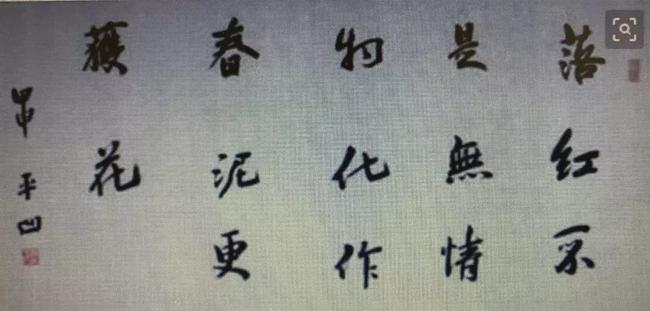 落红不
是無情
物化作
春泥更
護花
甲申 平凹